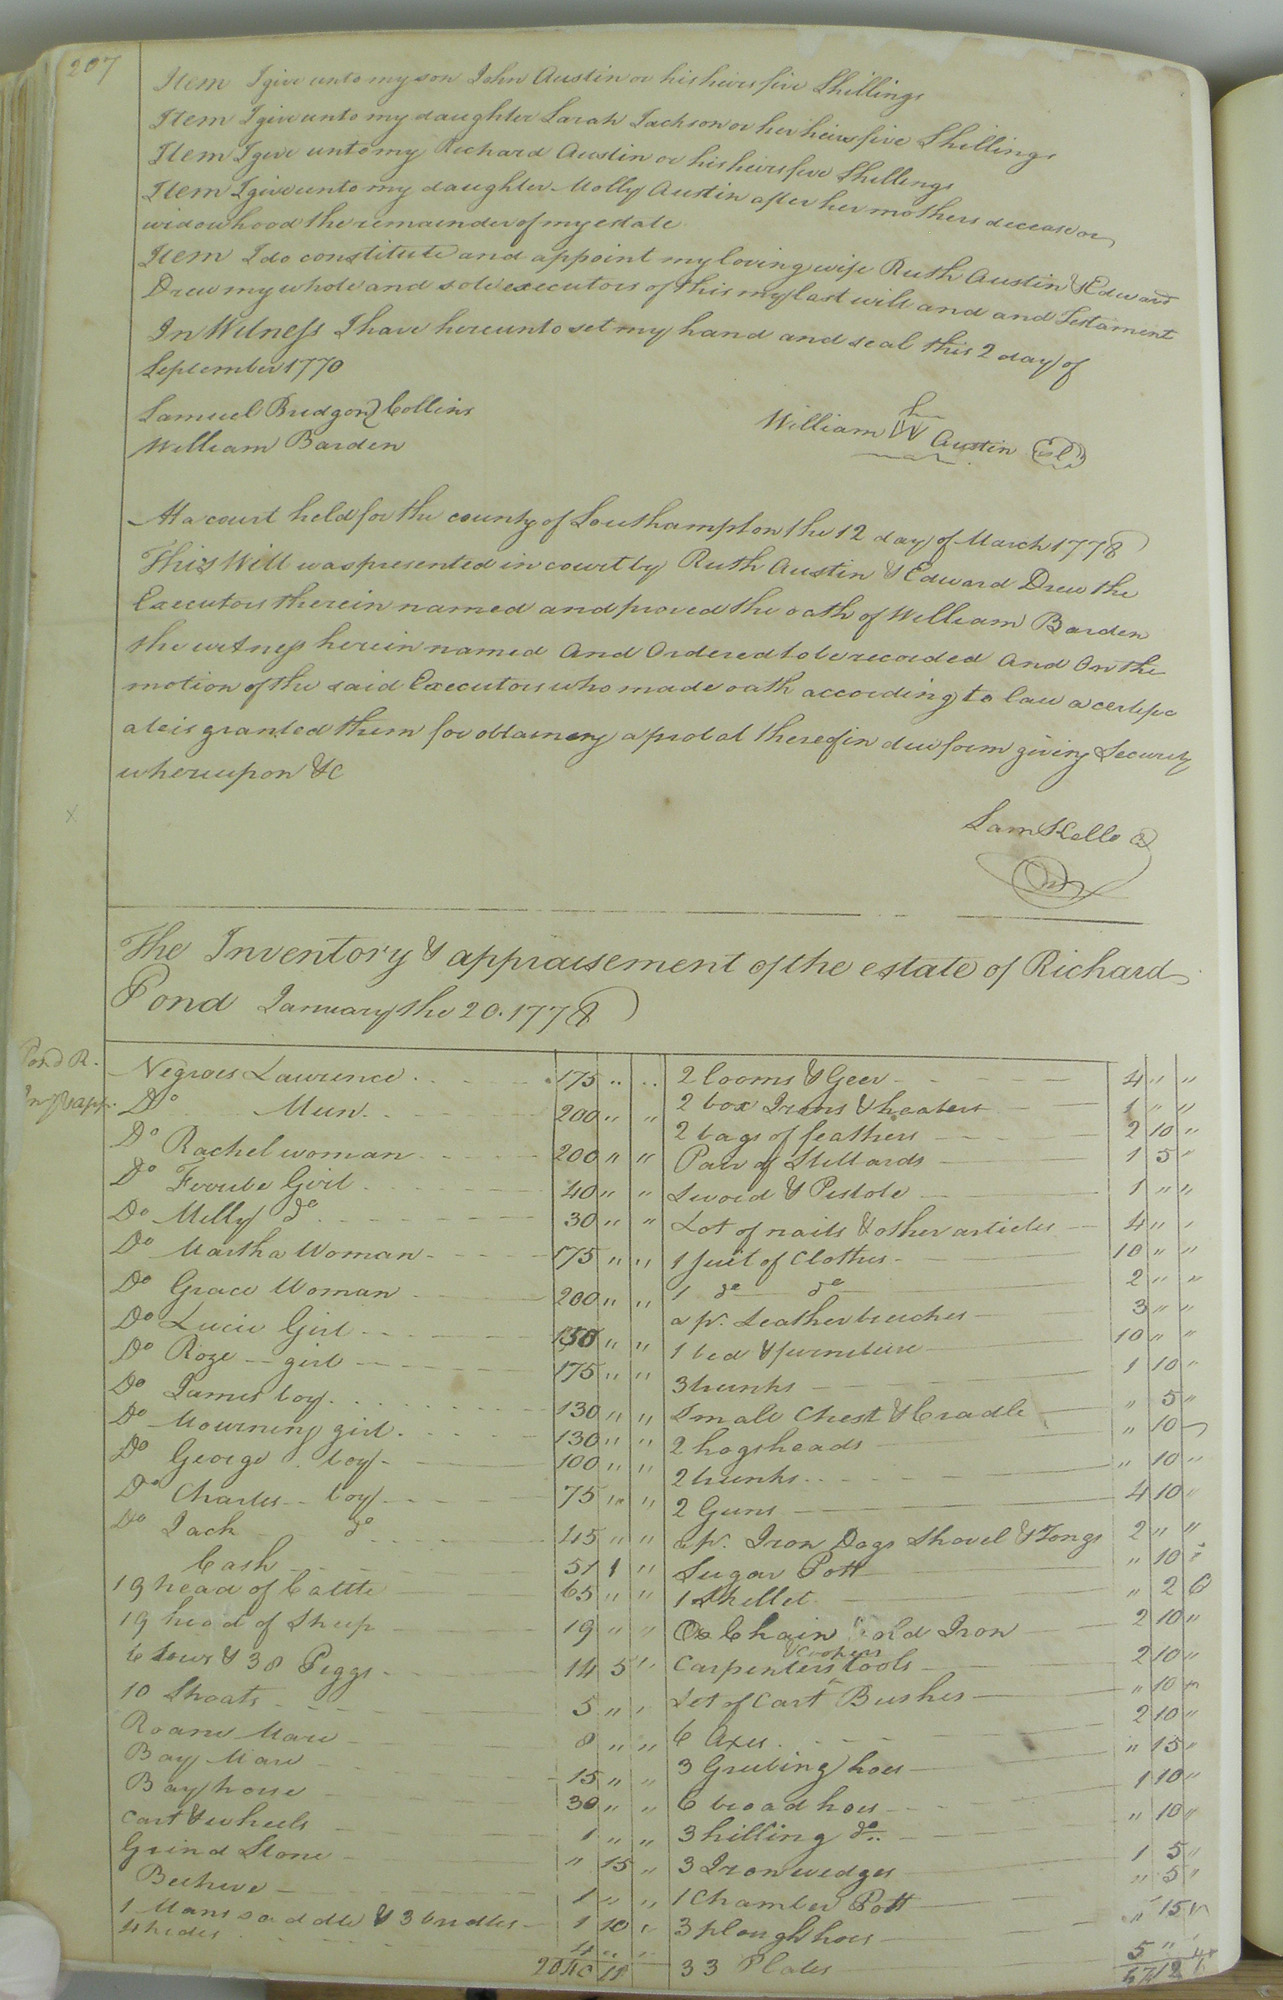 207
Item I give unto my son John Austin or his heirs five Shillings
Item I give unto my daughter Sarah Jackson or her heirs five Shillings
Item I give unto my Richard Austin or his heirs five Shillings
Item I give unto my daughter Molly Austin after her mothers decease or
widowhood the remainder of my estate
Item I do constitute and appoint my loving wife Ruth Austin & Edward
Drew my whole and sole executors of this my last will and and Testament
In Witness I have hereunto set my hand and seal this 2 day of
September 1770
Samuel Bridgon Collins
William Barden
William W Austin
At a court held for the county of Southampton the 12 day of March 1778
This Will was presented in court by Ruth Austin & Edward Drew the
Executors therein named and proved the oath of William Barden
the witness herein named And Ordered to be recorded And On the
motion of the said Executors who made oath according to law a certific
ate is granted them for obtaining a probat thereof in due form giving Security
whereupon &c
Sam Kello
The Inventory & appraisement of the estate of Richard
Pond January the 20. 1778
Pond R.
Inv & app.
Negroes Lawrence 175 " "
Do Mun 200 " "
Do Rachel woman 200 " "
Do Girl 40 " "
Do Milly do 30 " "
Do Martha Woman 175 " "
Do Grace Woman 200 " "
Do Lucie Girl 150 " "
Do Roze girl 175 " "
Do James boy 130 " "
Do Mourning girl 130 " "
Do George boy 100 " "
Do Charles boy 75 " "
Do Jack do 45 " "
Cash 51 1 "
19 head of Cattle 65 " "
19 head of Sheep 19 " "
6 Sows & 38 Piggs 14 5 "
10 Shoats 5 " "
Roane Mare 8 " "
Bay Mare 15 " "
Bay horse 30 " "
Cart & wheels 1 " "
Grind Stone " 15 "
Beehive 1 " "
1 Mans saddle & 3 bridles 1 10 "
4 hides 4 " "
2040 11
2 looms & Geer 4 " "
2 box Irons & heaters 1 " "
2 bags of feathers 2 10 "
Pair of Stillards 1 5 "
Sword & Pistole 1 " "
Lot of nails & other articles 4 " "
1 suit of Clothes 10 " "
1 do do 2 " "
a pr. Leather breeches 3 " "
1 bed & furniture 10 " "
3 trunks 1 10 "
Small Chest & Cradle " 5 "
2 hogsheads " 10 "
2 trunks " 10 "
2 Guns 4 10 "
a pr. Iron Dogs Shovel & Tongs 2 " "
Sugar Pott " 10
1 Skellet " 2 6
Ox Chain & old Iron 2 10 "
Carpenters & Coopers tools 2 10 "
Set of Cart Bushes " 10 "
6 Axes 2 10 "
3 Grubing hoes " 15 "
6 broad hoes 1 10 "
3 hilling do " 10 "
3 Iron wedges 1 5 "
1 Chamber Pott " 5 "
3 plough hoes " 15 "
33 Plates 5 " "